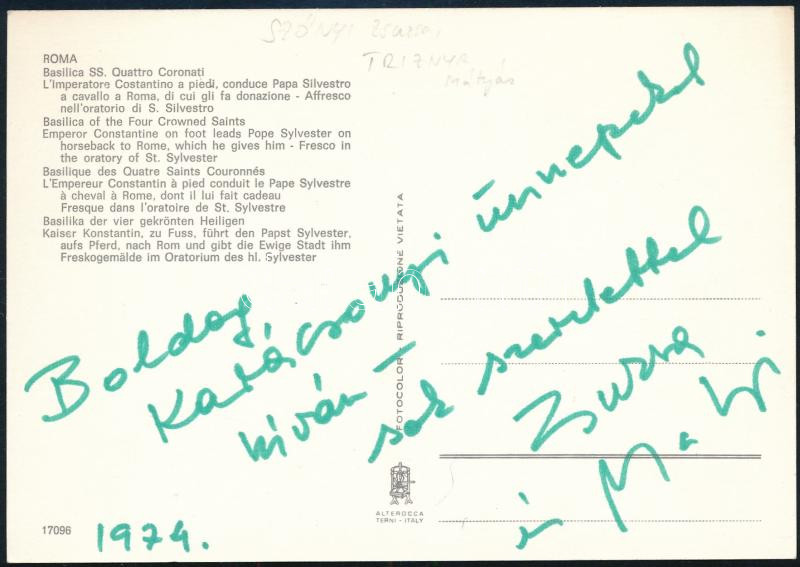 SZŐNYI Zsuzsa,
TRIZNYA
Mátyás
ROMA
Basilica SS. Quattro Coronati
L'Imperatore Costantino a piedi, conduce Papa Silvestro
a cavallo a Roma, di cui gli fa donazione - Affresco
nell'oratorio di S. Silvestro
Basilica of the Four Crowned Saints
Emperor Constantine on foot leads Pope Sylvester on
horseback to Rome, which he gives him - Fresco in
the oratory of St. Sylvester
Basilique des Quatre Saints Couronnés
L'Empereur Constantin à pied conduit le Pape Sylvestre
à cheval à Rome, dont il lui fait cadeau
Fresque dans l'oratoire de St. Silvestre
Basilika der vier gekrönten Heiligen
Kaiser Konstantin, zu Fuss, führt den Papst Sylvester,
aufs Pferd, nach Rom und gibt die Ewige Stadt ihm
Freskogemälde im Oratorium des hl. Sylvester
Boldog
Karácsonyi ünnepeket
kíván –
sok szeretettel
Zsuzsa
és Matyi
1974.
17096
FOTOCOLOR - RIPRODUZIONE VIETATA
ALTEROCCA
TERNI - ITALY